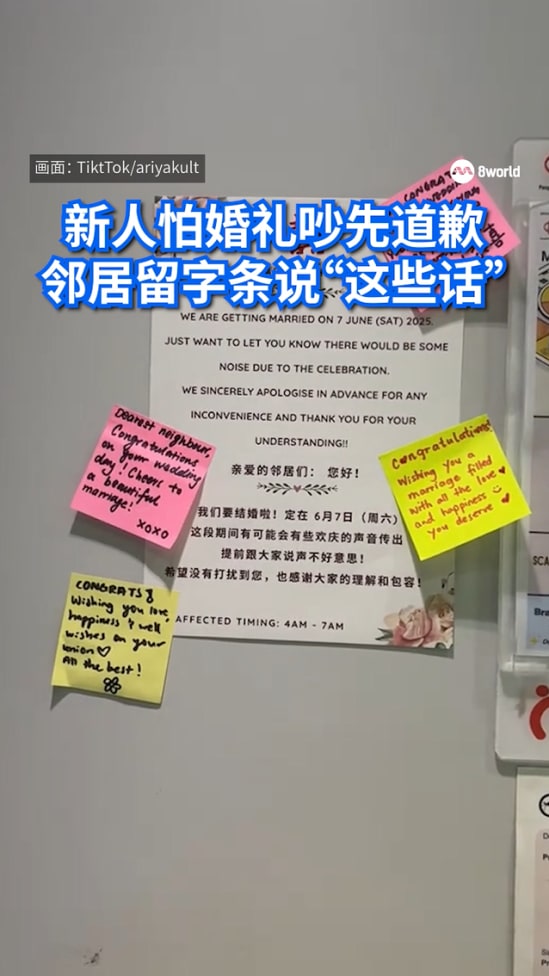 画面：TiktTok/ariyakult
8world
新人怕婚礼吵先道歉
邻居留字条说“这些话”
WE ARE GETTING MARRIED ON 7 JUNE (SAT) 2025.
JUST WANT TO LET YOU KNOW THERE WOULD BE SOME
NOISE DUE TO THE CELEBRATION.
WE SINCERELY APOLOGISE IN ADVANCE FOR ANY
INCONVENIENCE AND THANK YOU FOR YOUR
UNDERSTANDING!!
亲爱的邻居们： 您好！
我们要结婚啦！定在 6月7日（周六）
这段期间有可能会有些欢庆的声音传出
提前跟大家说声不好意思！
希望没有打扰到您，也感谢大家的理解和包容！
AFFECTED TIMING: 4AM - 7AM
Dearest neighbour,
Congratulations
on your wedding
day! Cheers to
a beautiful
marriage!
XOXO
Congratulations!
Wishing you a
marriage filled
with all the love
and happiness
you deserve
CONGRATS
Wishing you love,
happiness & well
wishes on your
union
All the best!